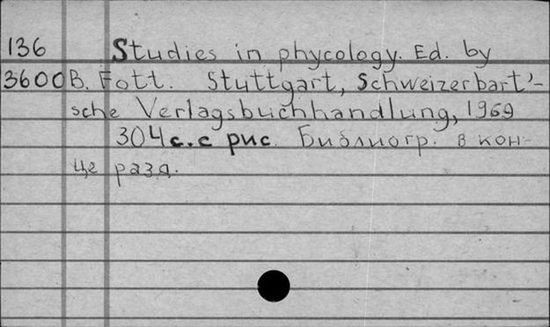 136 Studies in phycology. Ed. by
3600 B. Fott. Stuttgart, Schweizerbart'-
sche Verlagsbuchhandlung, 1969
304 с. с рис. Библиогр. в кон-
це разд.